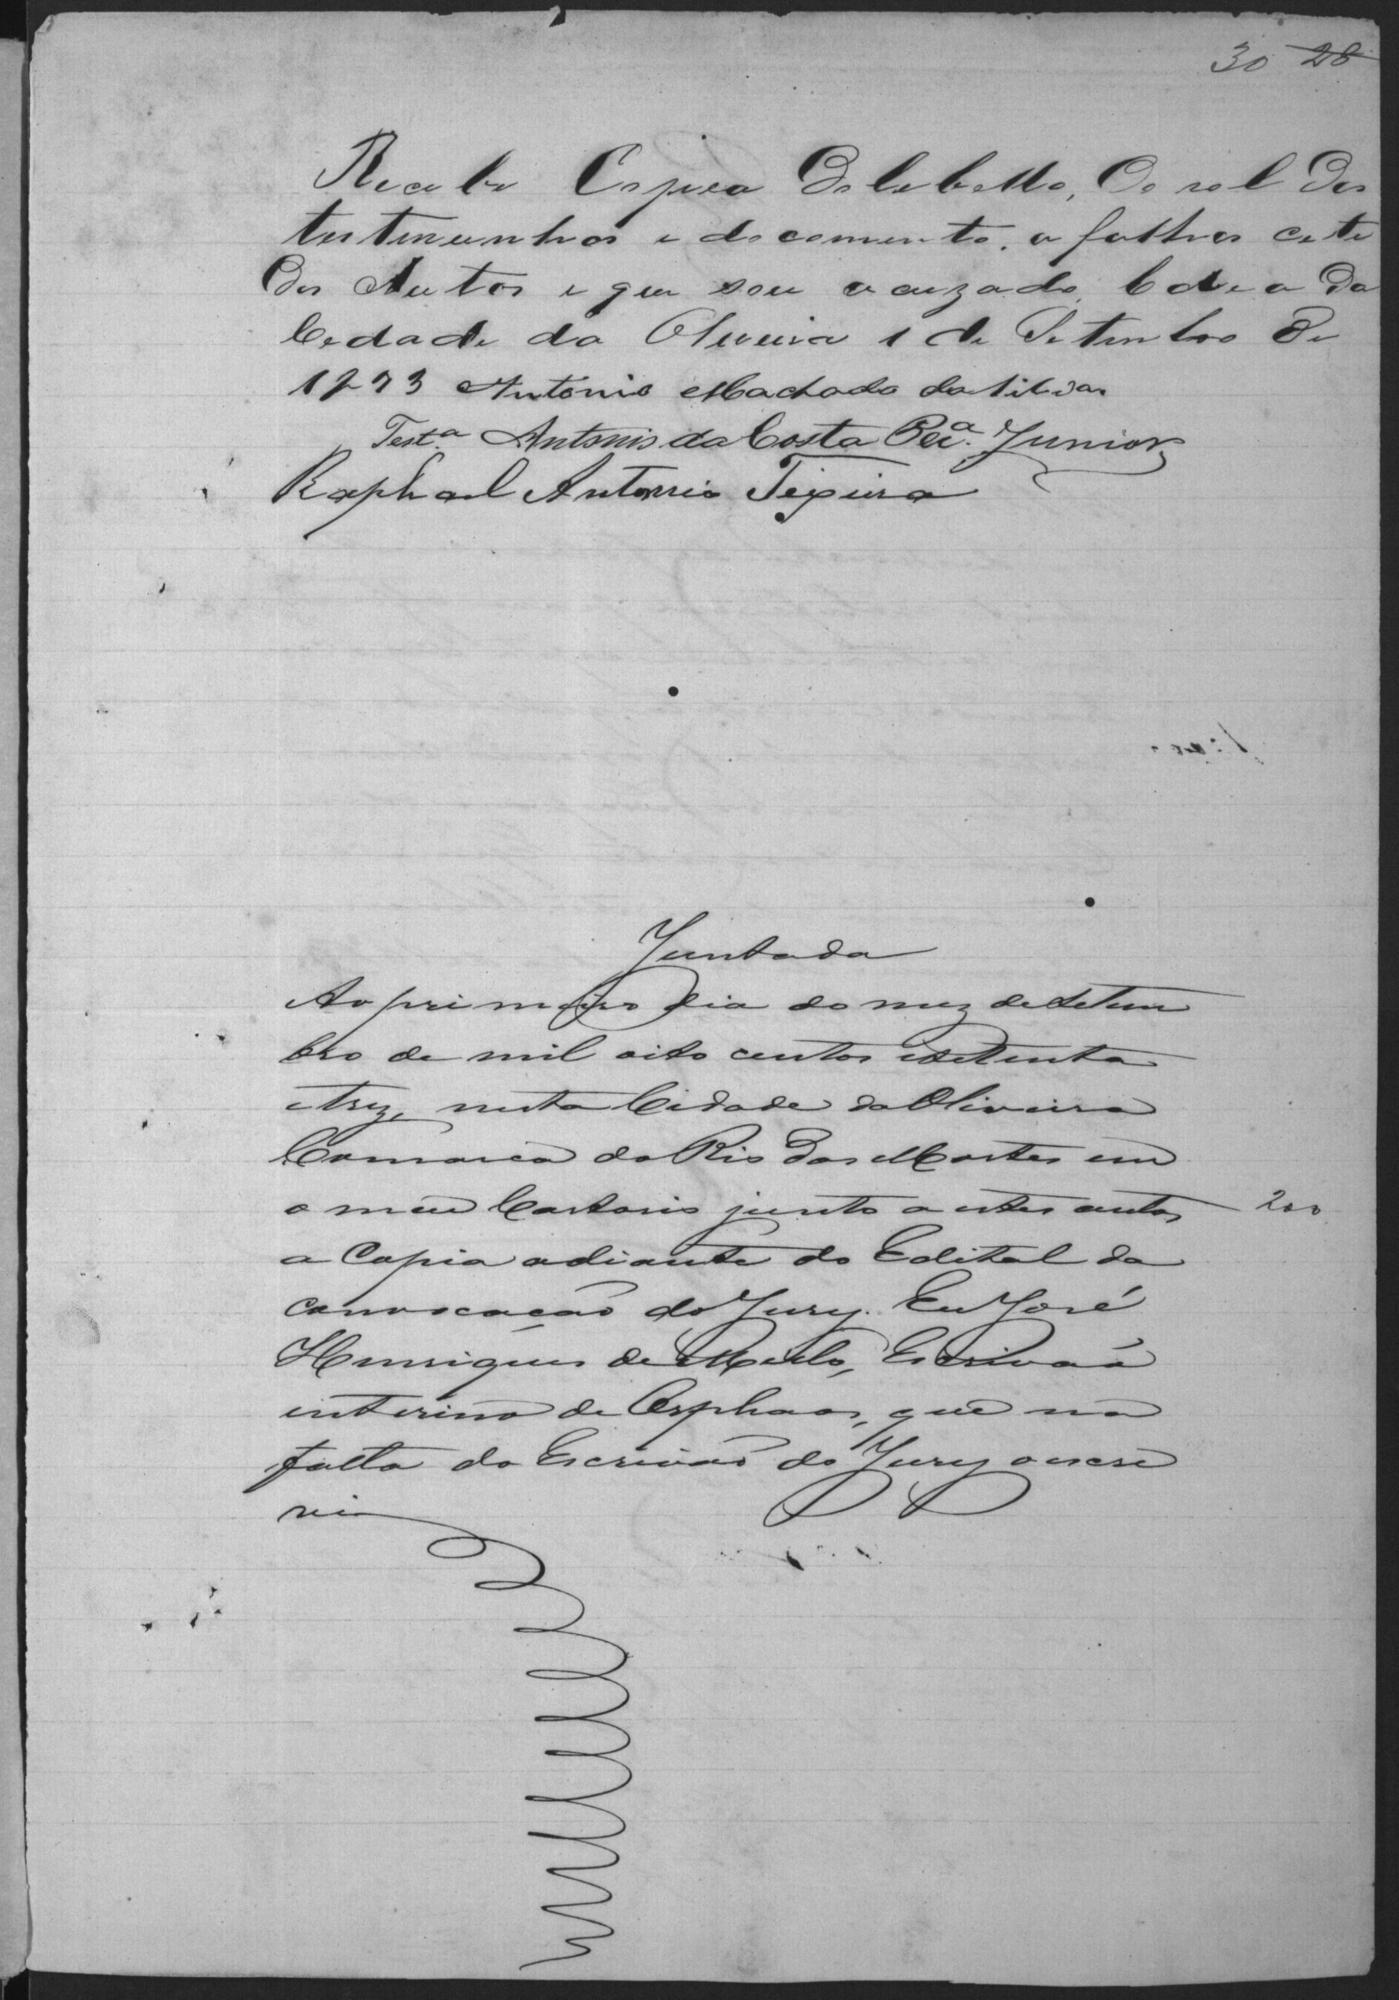 30 28
Recebi Copiea Dolebello, Do rol Das
testemunhas e docomento. a folhas cete
Dos Autos e que sou acuzado Cadea Da
Cedade da Oliveira 1 de Setembro De
1873 Antonio Machado da Silva
Test.ª Antonio da Costa Per.ª Junior
Raphael Antonio Teixeira
Juntada
Ao primeiro dia do mez de Setem
bro de mil oito centos e Setenta
e trez, nesta Cidade da Oliveira
Comarca do Rio das Mortes em
o meu Cartorio junto a estes autos 200
a Copia adiante do Edital da
convocação do Jury. Eu José
Henriques de Mello, Escrivão
interino de Orphaos, que na
falta do Escrivão do Jury o escre
vi